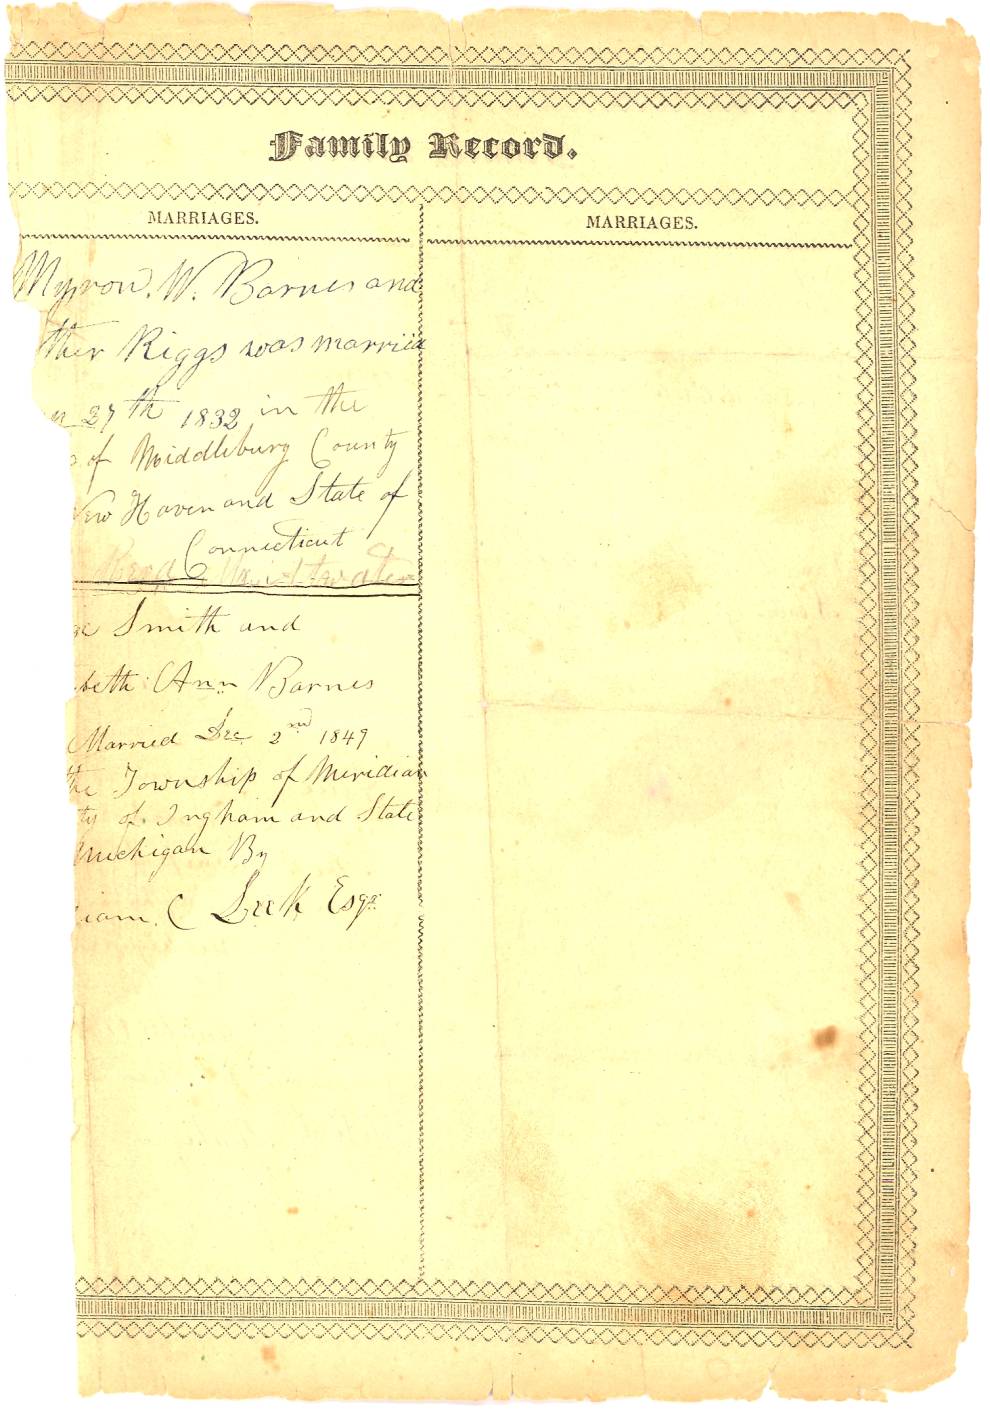 Family Record.
MARRIAGES.
Myron. W. Barnes and
ther Riggs was married
27th 1832 in the
of Middleburg County
New Haven and State of
Connecticut
Smith and
beth Ann Barnes
Married Dec 2nd 1849
the Township of Meridian
ty of Ingham and State
Michigan By
iam. C Leek Esqr
MARRIAGES.